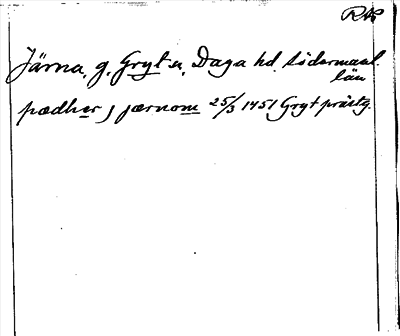 RAP
Järna, g. Gryt sn, Daga hd. Södermanl.
län
pædher j jærnom 25/3 1451 Gryt prästg.